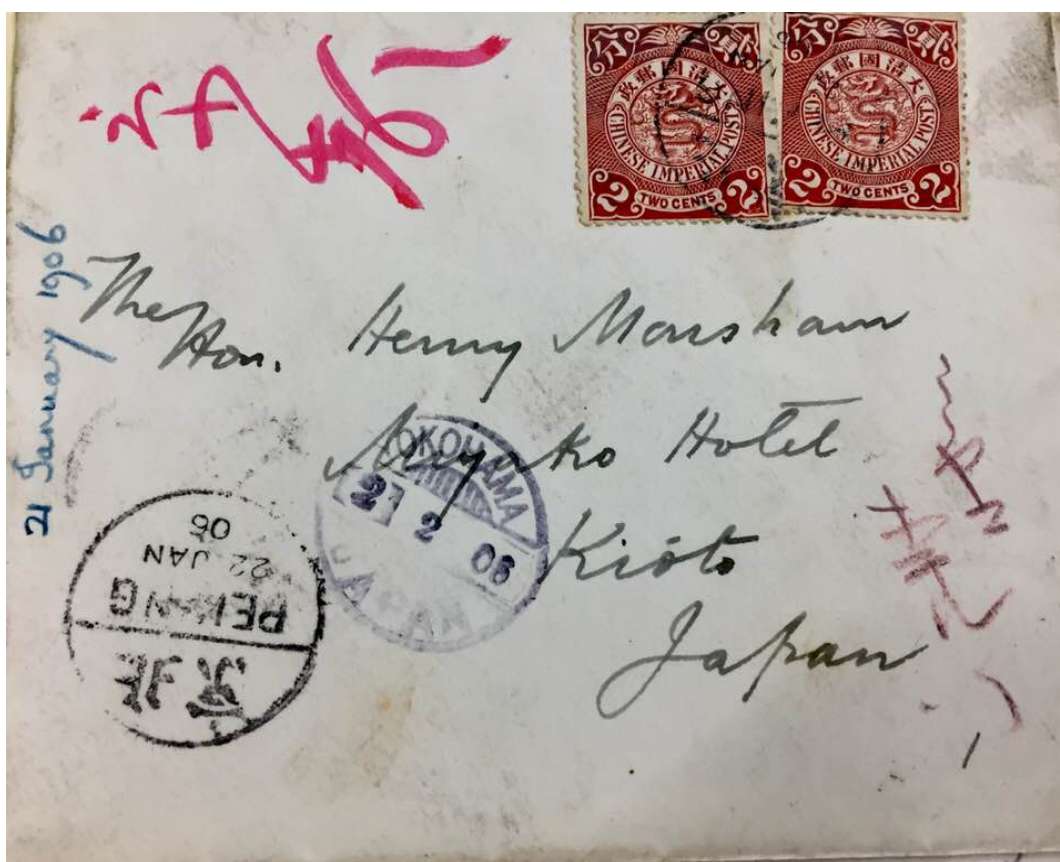 分 貳
大清國郵政
CHINESE IMPERIAL POST
2 TWO CENTS 2
分 貳
大清國郵政
CHINESE IMPERIAL POST
2 TWO CENTS 2
21 January 1906
The Hon. Henry Marsham
Miyako Hotel
Kiōto
Japan
YOKOHAMA
2 2 06
JAPAN
06
22 JAN
PEKING
北京